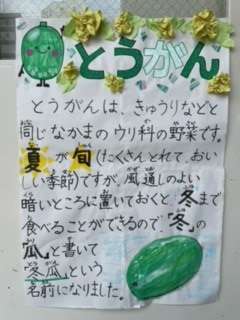 とうがん
とうがんは、きゅうりなどと
同じなかまのウリ科の野菜です。
夏が旬(たくさんとれて、おい
しい季節)ですが、風通しのよい
暗いところに置いておくと、冬まで
食べることができるので、「冬」の
「瓜」と書いて
「冬瓜」という
名前になりました。